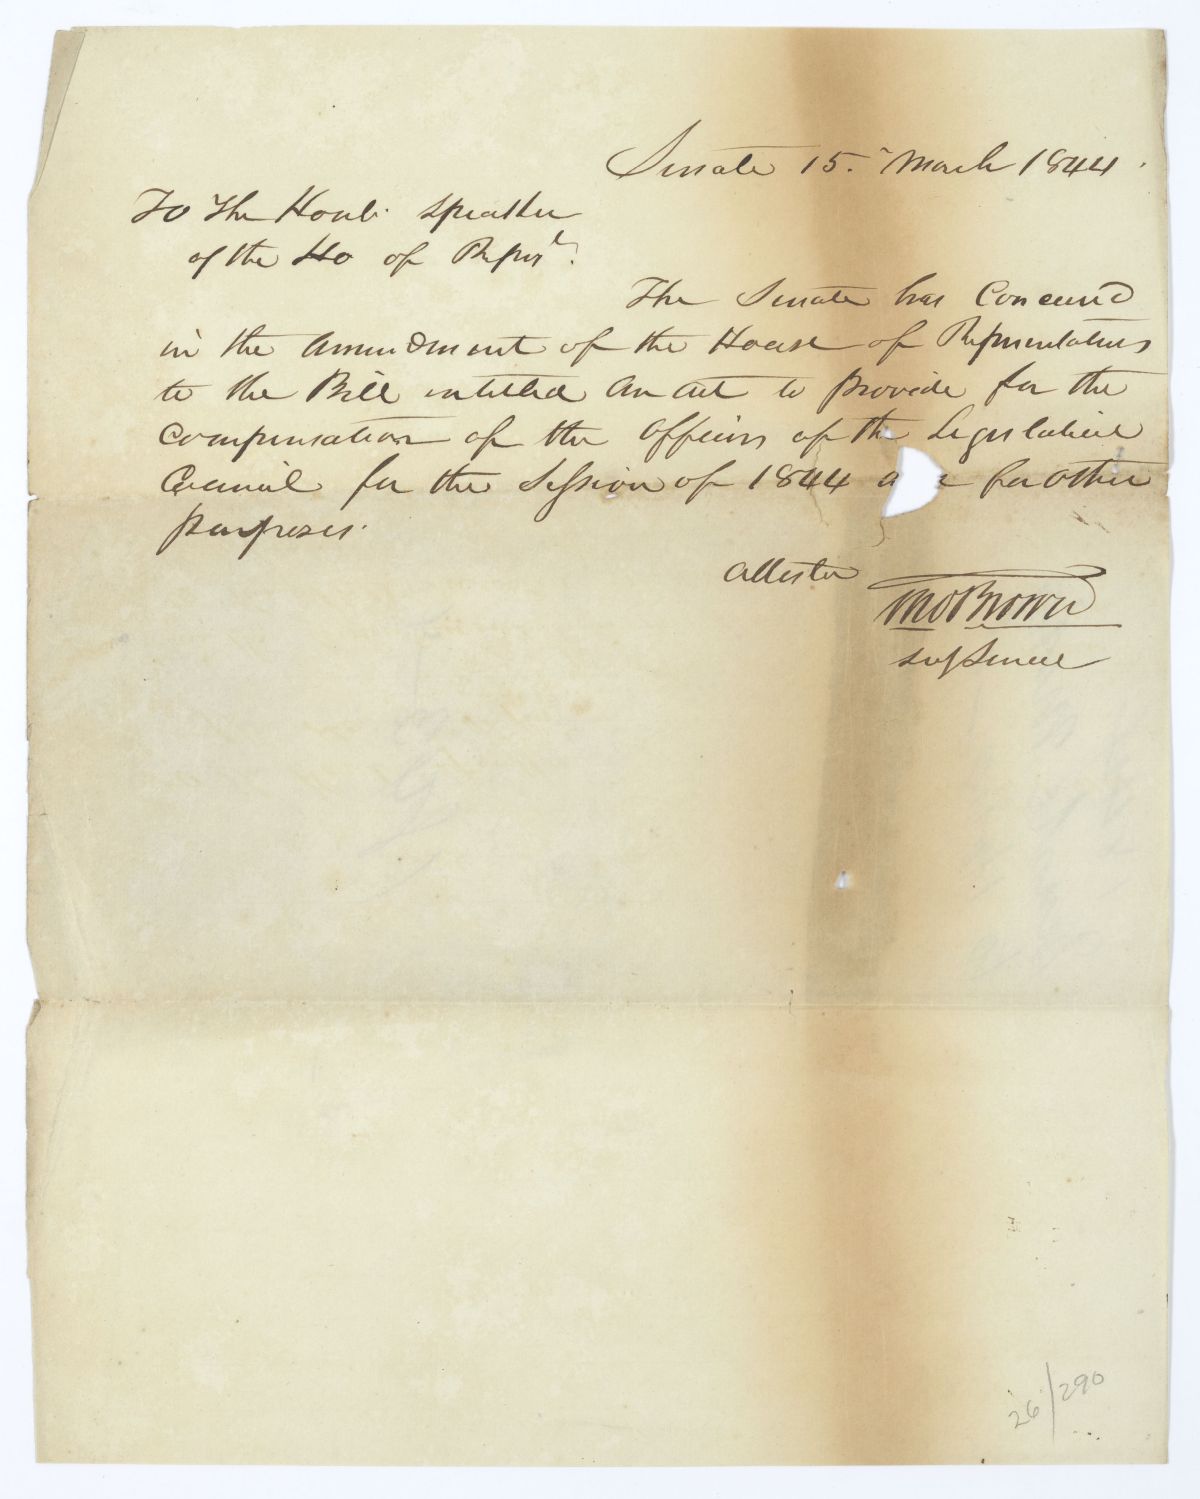 Senate 15. March 1844.
To The Honb. Speaker
of the Ho of Reps.
The Senate has Concurrd
in the Amendment of the House of Representatives
to the Bill entitled An act to provide for the
Compensation of the Officers of the Legislative
Council for the Session of 1844 a e for other
purposes.
Attests
ThoBrown
Secy Senate
26/290